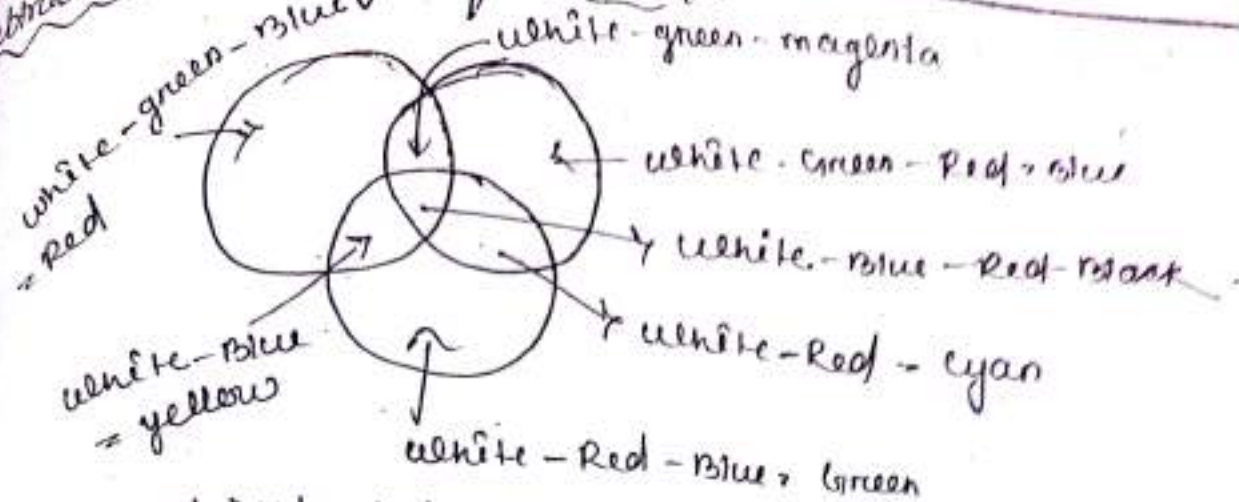 white-green-Blue
= Red
white-green-magenta
white-Green-Red = Blue
white-Blue-Red-Black
white-Red - Cyan
white-Blue
= yellow
white-Red-Blue = Green